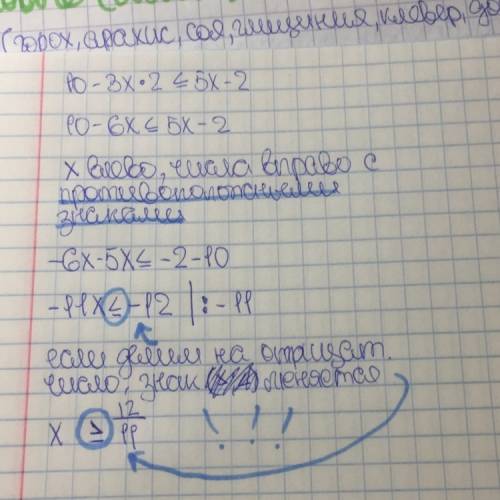 (горох, арахис, соя, глициния, клевер,
10-3x•2 ≤ 5x-2
10-6x ≤ 5x-2
x влево, числа вправо с
противоположными
знаками
-6x-5x ≤ -2-10
-11x ≤ -12 | : -11
если делим на отрицат.
число, знак меняется
x ≥ 12/11 !!!